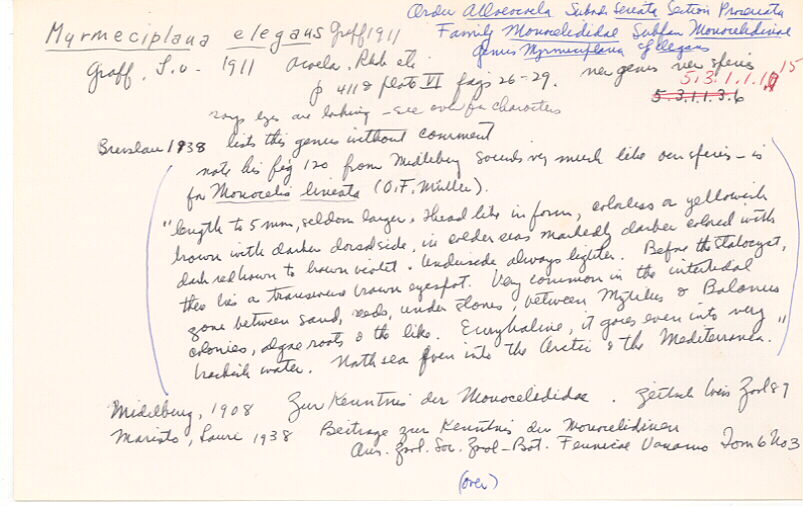 Order Alloeocoela Subord Seriata Section Proseriata
Myrmeciplana elegans Graff 1911
Family Monocelididae Subfam Monocelidinae
genus Myrmeciplana elegans
Graff, L.v. 1911 Acoela, Rhab etc
p 411 & plate VI figs 26-29. new genus new species
5.3.1.1.1 15
5.3.1.1.3.6
says eyes are lacking - see over for characters
Bresslau 1938 lists this genus without comment
note his fig 120 from Midelburg sounds very much like our species - is
for Monocelis lineata (O.F. Müller).
"length to 5 mm, seldom larger, thead like in form, colorless or yellowish
brown with darker dorsal side, in colder seas markedly darker colored with
dark red brown to brown violet. Underside always lighter. Before the statocyst,
ther lies a transverse brown eyespot. Very common in the intertidal
zone between sand, reeds, under stones, between Mytilus & Balanus
colonies, algae roots & the like. Euryhaline, it goes even into very
brackish water. North sea even into the Arctic & the Mediterranea."
Midelburg, 1908 Zur Kenntnis der Monocelididae. Zeitsch Wiss Zool 89
Maristo, Lauri 1938 Beitrage zur Kenntnis der Monocelidinen
Ann. Zool. Soc. Zool-Bot. Fennicae Vanamo Tom 6 No 3
(over)